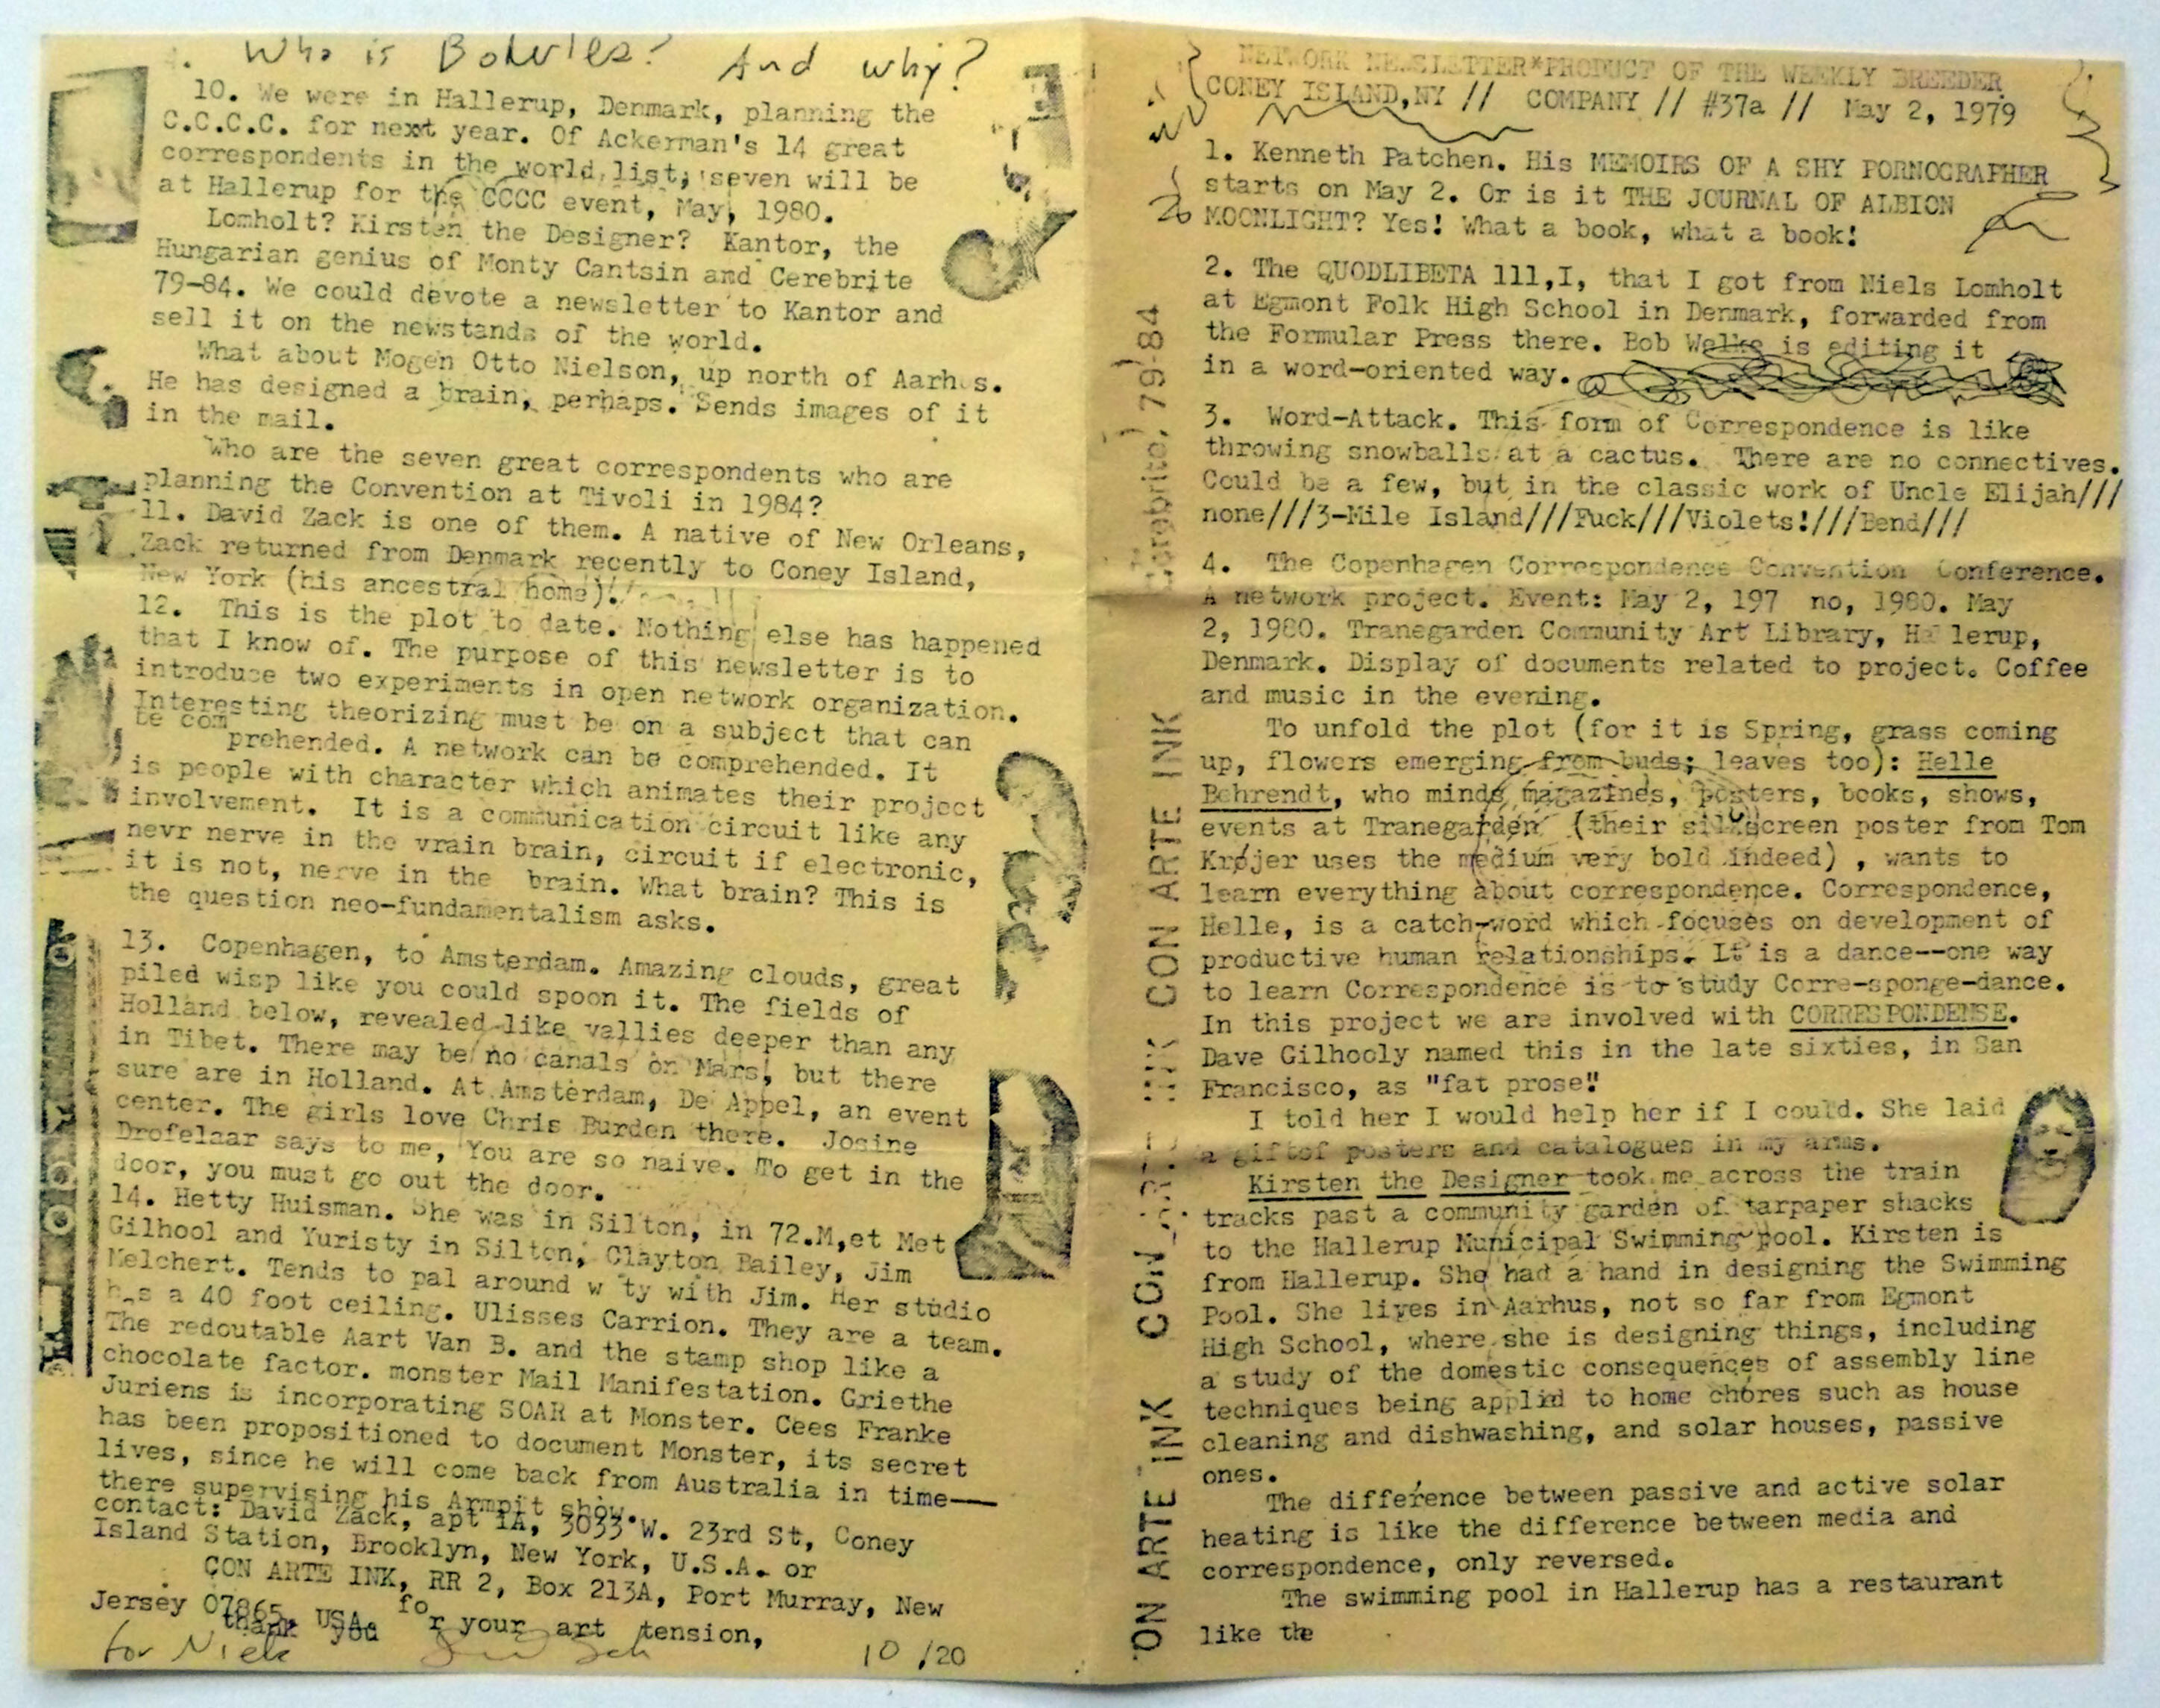 Who is Bowles? And why?
10. We were in Hallerup, Denmark, planning the
C.C.C.C. for next year. Of Ackerman's 14 great
correspondents in the world list, seven will be
at Hallerup for the CCCC event, May, 1980.
Lomholt? Kirsten the Designer? Kantor, the
Hungarian genius of Monty Cantsin and Cerebrite
79-84. We could devote a newsletter to Kantor and
sell it on the newstands of the world.
What about Mogen Otto Nielson, up north of Aarhus.
He has designed a brain, perhaps. Sends images of it
in the mail.
Who are the seven great correspondents who are
planning the Convention at Tivoli in 1984?
11. David Zack is one of them. A native of New Orleans,
Zack returned from Denmark recently to Coney Island,
New York (his ancestral home).
12. This is the plot to date. Nothing else has happened
that I know of. The purpose of this newsletter is to
introduce two experiments in open network organization.
Interesting theorizing must be on a subject that can
be com
prehended. A network can be comprehended. It
is people with character which animates their project
involvement. It is a communication circuit like any
nevr nerve in the vrain brain, circuit if electronic,
it is not, nerve in the brain. What brain? This is
the question neo-fundamentalism asks.
13. Copenhagen, to Amsterdam. Amazing clouds, great
piled wisp like you could spoon it. The fields of
Holland below, revealed like vallies deeper than any
in Tibet. There may be no canals on Mars, but there
sure are in Holland. At Amsterdam, De Appel, an event
center. The girls love Chris Burden there. Josine
Drofelaar says to me, You are so naive. To get in the
door, you must go out the door.
14. Hetty Huisman. She was in Silton, in 72.M,et Met
Gilhool and Yuristy in Silton, Clayton Bailey, Jim
Melchert. Tends to pal around w ty with Jim. Her studio
has a 40 foot ceiling. Ulisses Carrion. They are a team.
The redoutable Aart Van B. and the stamp shop like a
chocolate factor. monster Mail Manifestation. Griethe
Juriens is incorporating SOAR at Monster. Cees Franke
has been propositioned to document Monster, its secret
lives, since he will come back from Australia in time—
there supervising his Armpit show.
contact: David Zack, apt 1A, 3033 W. 23rd St, Coney
Island Station, Brooklyn, New York, U.S.A. or
CON ARTE INK, RR 2, Box 213A, Port Murray, New
Jersey 07865, USA.
thank you for your art tension,
for Niels 10/20
NETWORK NEWSLETTER*PRODUCT OF THE WEEKLY BREEDER
CONEY ISLAND,NY // COMPANY // #37a // May 2, 1979
1. Kenneth Patchen. His MEMOIRS OF A SHY PORNOGRAPHER
starts on May 2. Or is it THE JOURNAL OF ALBION
MOONLIGHT? Yes! What a book, what a book!
2. The QUODLIBETA 111,I, that I got from Niels Lomholt
at Egmont Folk High School in Denmark, forwarded from
the Formular Press there. Bob Welke is editing it
in a word-oriented way.
3. Word-Attack. This form of Correspondence is like
throwing snowballs at a cactus. There are no connectives.
Could be a few, but in the classic work of Uncle Elijah///
none///3-Mile Island///Fuck///Violets!///Bend///
4. The Copenhagen Correspondence Convention Conference.
A network project. Event: May 2, 197 no, 1980. May
2, 1980. Tranegarden Community Art Library, Hallerup,
Denmark. Display of documents related to project. Coffee
and music in the evening.
To unfold the plot (for it is Spring, grass coming
up, flowers emerging from buds; leaves too): Helle
Behrendt, who minds magazines, posters, books, shows,
events at Tranegarden (their silkscreen poster from Tom
Krøjer uses the medium very bold indeed) , wants to
learn everything about correspondence. Correspondence,
Helle, is a catch-word which focuses on development of
productive human relationships. It is a dance--one way
to learn Correspondence is to study Corre-sponge-dance.
In this project we are involved with CORRESPONDENSE.
Dave Gilhooly named this in the late sixties, in San
Francisco, as "fat prose".
I told her I would help her if I could. She laid
a giftof posters and catalogues in my arms.
Kirsten the Designer took me across the train
tracks past a community garden of tarpaper shacks
to the Hallerup Municipal Swimming pool. Kirsten is
from Hallerup. She had a hand in designing the Swimming
Pool. She lives in Aarhus, not so far from Egmont
High School, where she is designing things, including
a study of the domestic consequences of assembly line
techniques being applid to home chores such as house
cleaning and dishwashing, and solar houses, passive
ones.
The difference between passive and active solar
heating is like the difference between media and
correspondence, only reversed.
The swimming pool in Hallerup has a restaurant
like the
Cerebrite, 79-84
CON ARTE INK
CON ARTE INK
ON ARTE INK